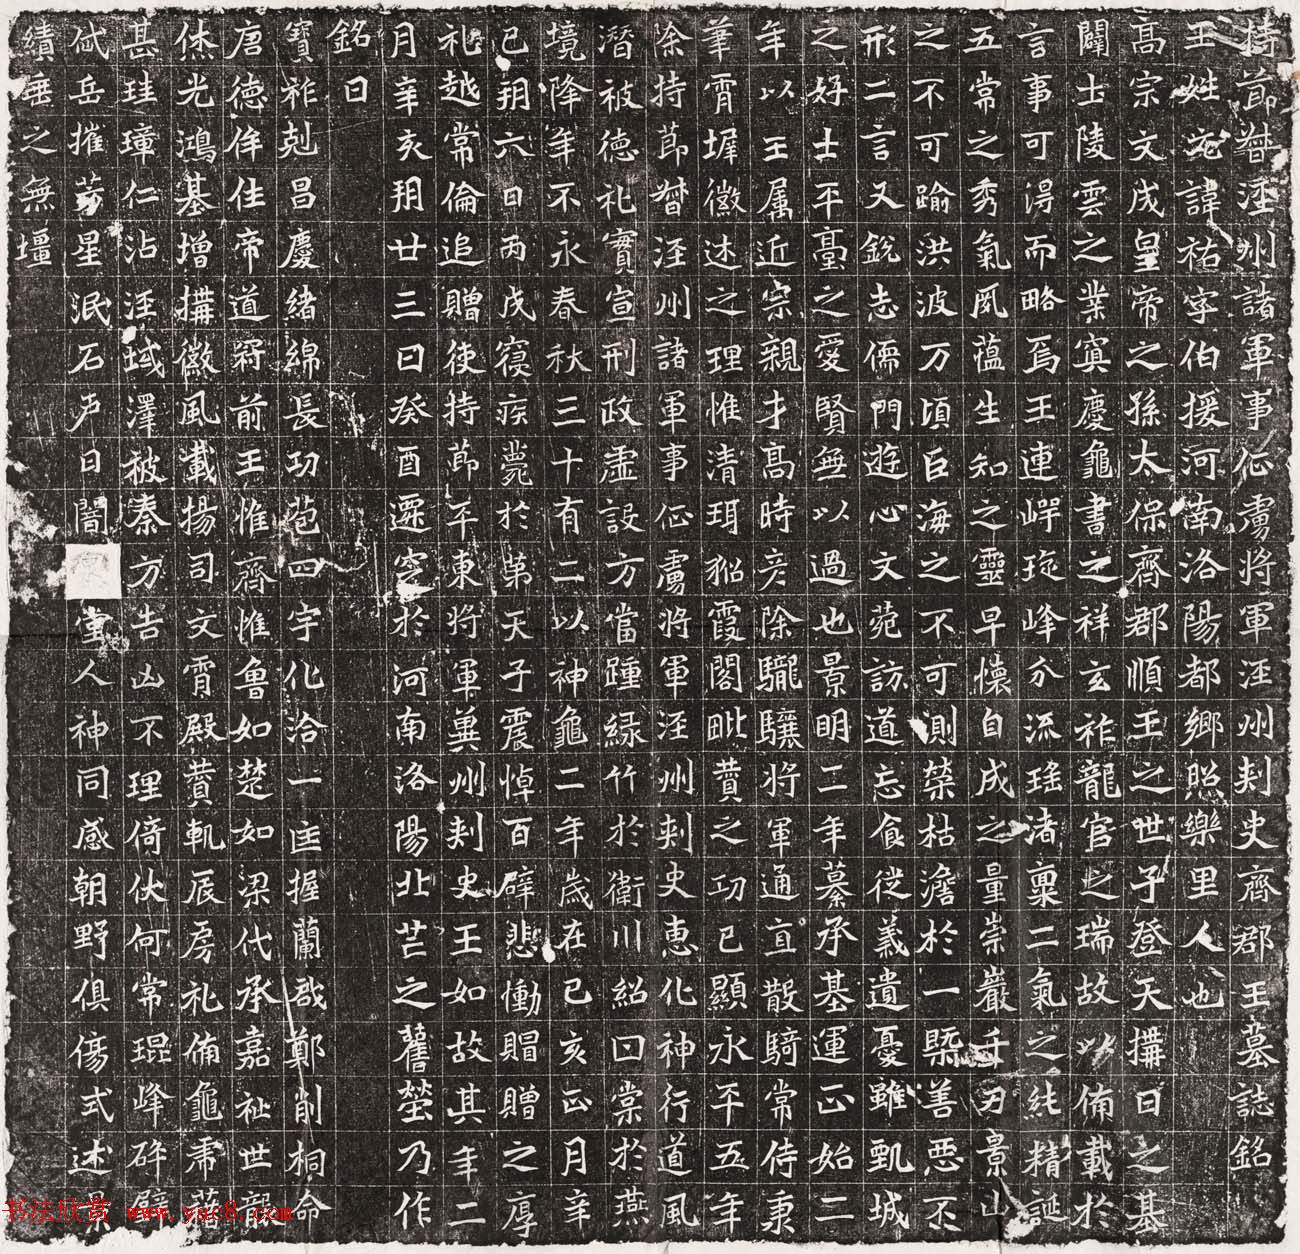 持節督涇州諸軍事征虜將軍涇州刾史齊郡王墓誌銘
王姓元諱祐字伯援河南洛陽都鄉照樂里人也
高宗文成皇帝之孫太保齊郡順王之世子登天構日之基
闢士陵雲之業寘慶龜書之祥玄祚龍官之瑞故以俻載於
言事可淂而略焉王連崿琁峰分流瑤渚稟二氣之純精誕
五常之秀氣夙蘊生知之靈早懷自成之量崇巖千刃景山
之不可踰洪波万頃巨海之不可測榮枯澹於一槩善惡不
形二言又銳志儒門遊心文苑訪道忘食從義遺憂雖甄城
之好士平臺之愛賢無以過也景明二年纂承基運正始二
年以王属近宗親才高時彥除驍驤將軍通直散騎常侍秉
筆霄墀徽述之理惟清珥貂霞閣毗贊之功已顯永平五年
除持莭督涇州諸軍事征虜將軍涇州刾史惠化神行道風
潛被德礼實宣刑政虛設方當踵緑竹於衛川紹曰棠於燕
境降年不永春秋三十有二以神龜二年歲在己亥正月辛
巳朔六日丙戌寢疾薨於第天子震悼百辟悲慟賵贈之厚
礼越常倫追贈使持莭平東將軍冀州刾史王如故其年二
月辛亥朔廿三日癸酉遷窆於河南洛陽北芒之舊塋乃作
銘曰
寶祚剋昌慶緒綿長功苞四宇化洽一匡握蘭哉鄭削桐命
唐德侔住帝道窮前王惟齊惟魯如楚如梁代承嘉祉世龍
休光鴻基增構徽風載揚司文霄殿贊軋扆房礼俻龜帬藹
甚珪璋仁沾涇域澤被秦方告凶不理倚伏何常琨峰碎璧
岱岳摧芳星泯石戸日闇堂人神同感朝野俱傷式述
績垂之無壃
书法欣赏 www.yac8.com